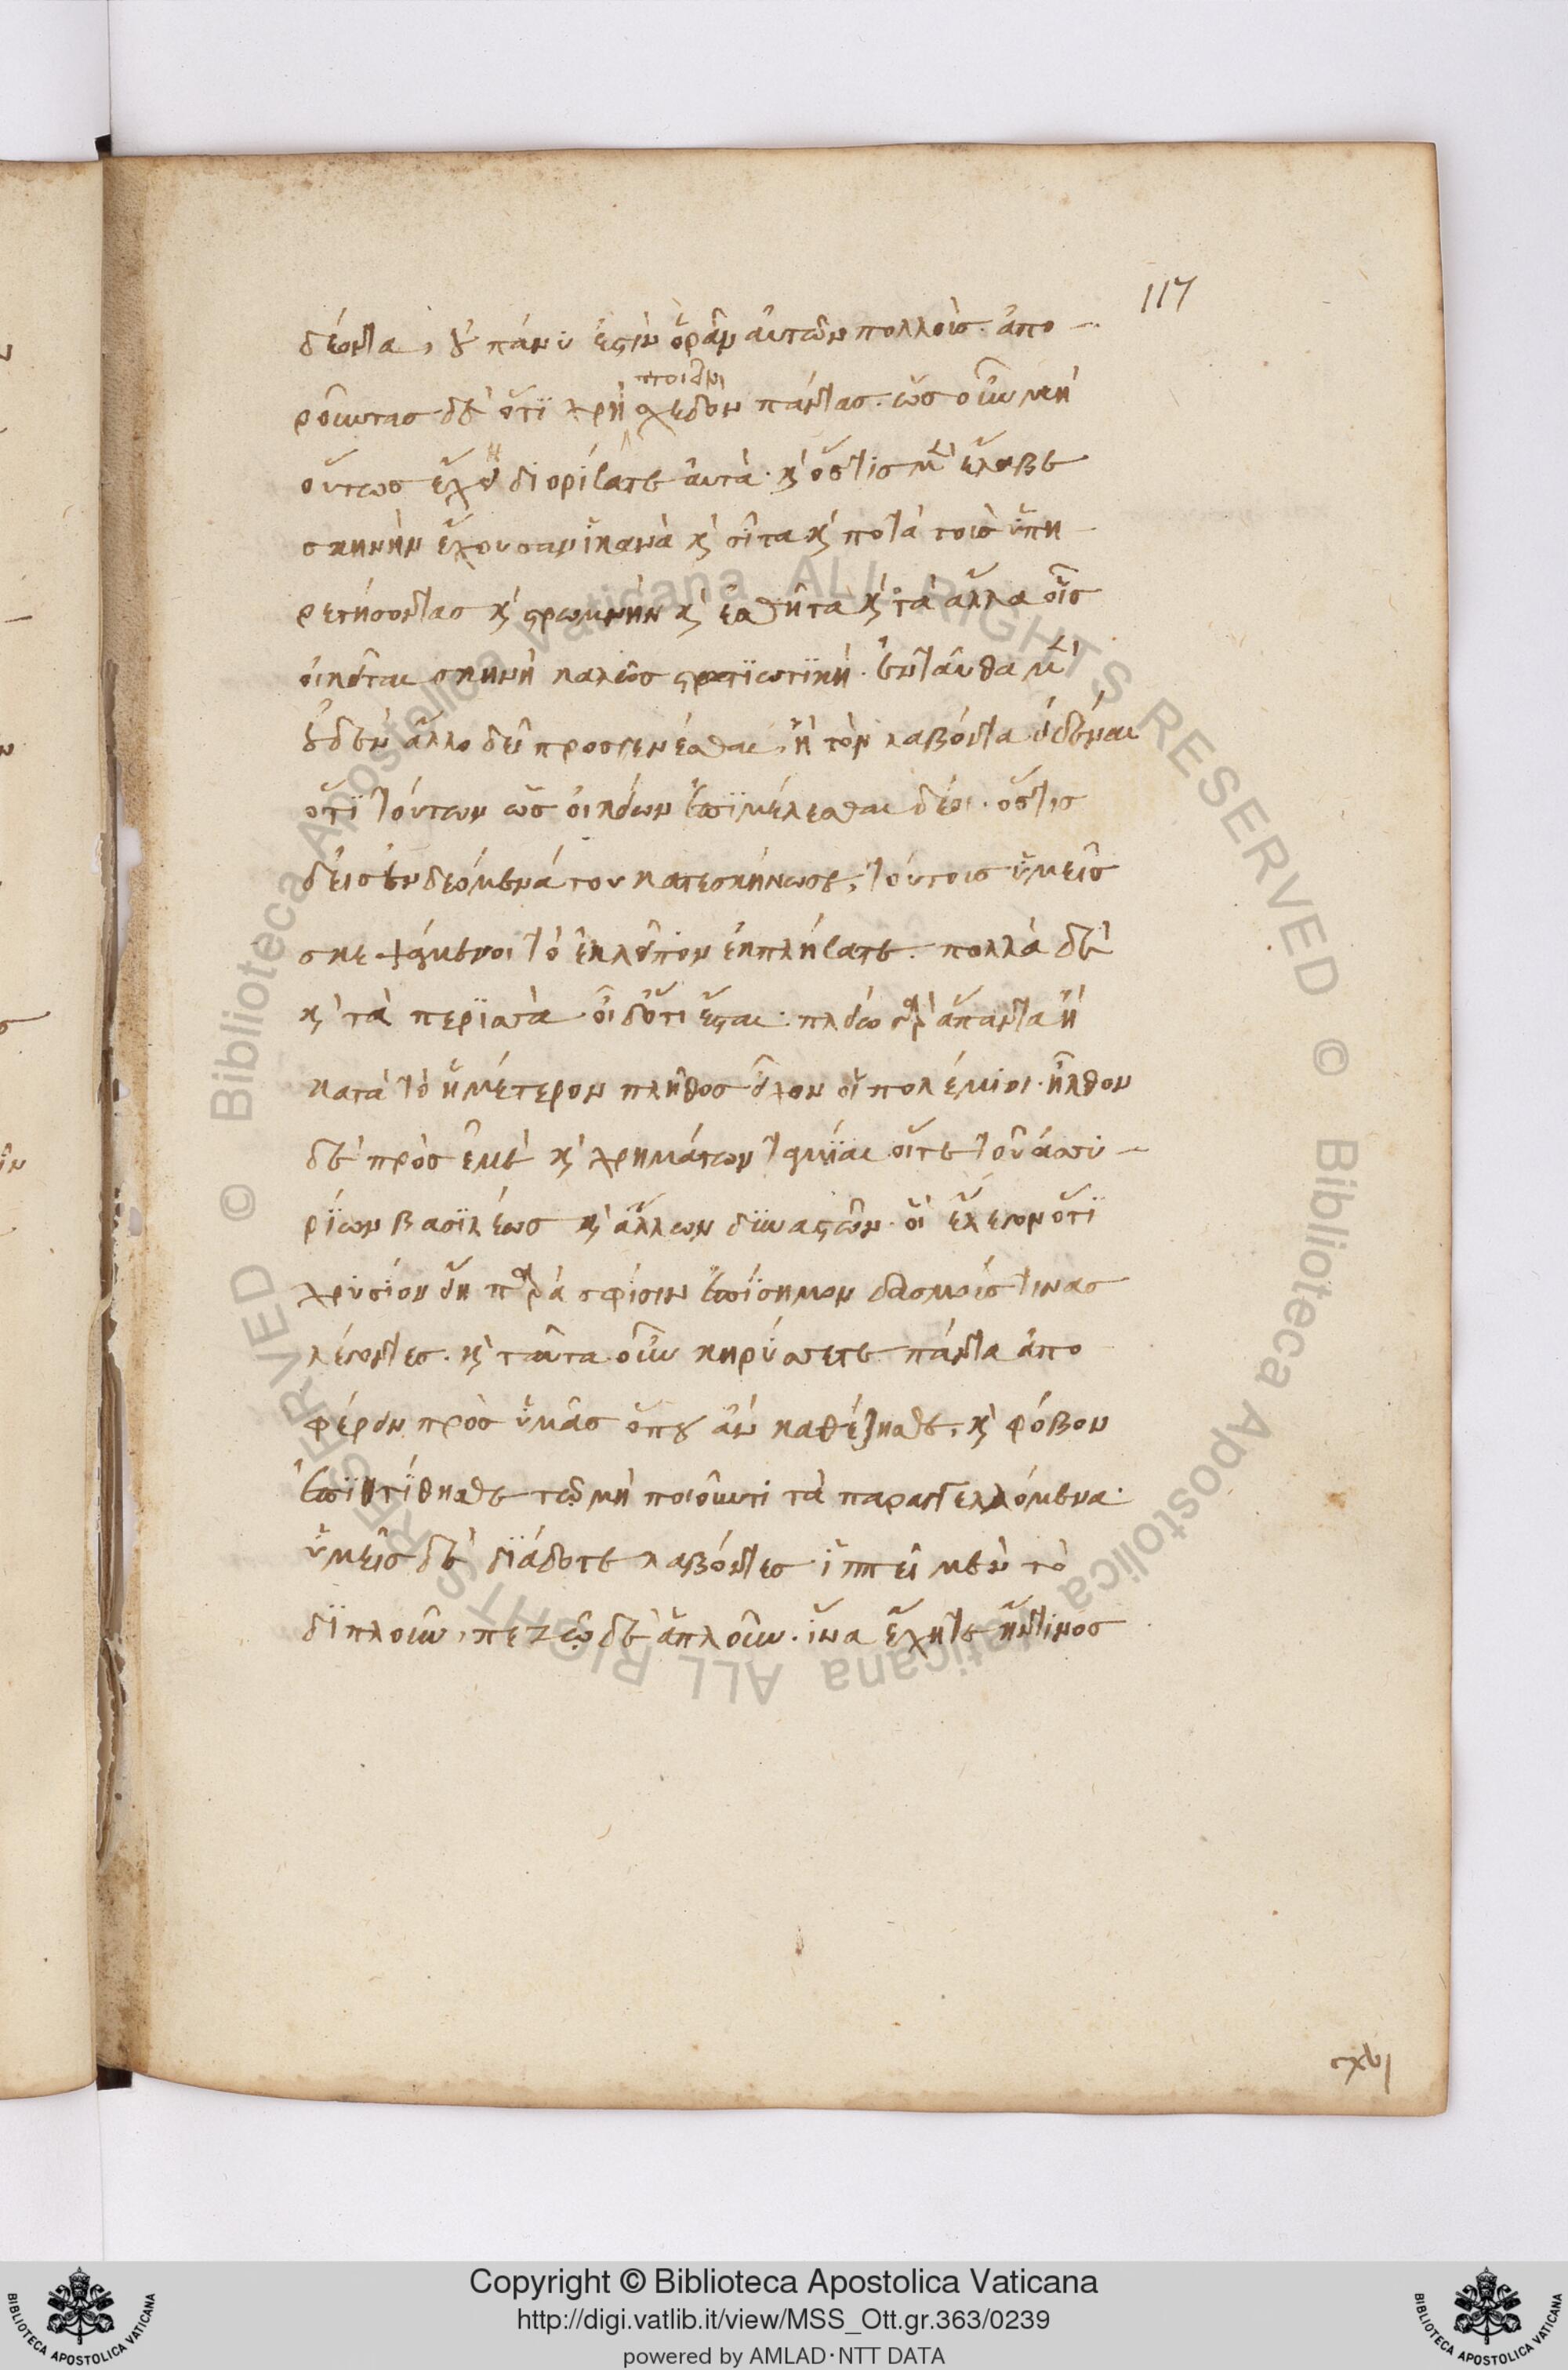 117
δέοντα, οὐ πάνυ ἐστὶν ὁρᾶν αὐτῶν πολλοῖς. ἀπο-
ροῦντας δὲ ὅτι χρὴ ποιεῖν σχεδὸν πάντας. ὡς οὖν μὴ
οὕτως ἔχῃ διορίσατε αὐτά. καὶ ὅστις μὲν ἔλαβε
σκηνὴν ἔχουσαν ἱκανὰ καὶ σῖτα καὶ ποτὰ τοῖς ὑπη
ρετήσοντας καὶ στρωμνὴν καὶ ἐσθῆτα καὶ τὰ ἄλλα οἷς
οἰκεῖται σκηνὴ καλῶς στρατιωτικὴ. ἐνταῦθα μὲν
οὐδὲν ἄλλο δεῖ προσγενέσθαι, ἢ τὸν λαβόντα εἰδέναι
ὅτι τούτων ὡς οἰκείων ἐπιμέλεσθαι δέοι. ὅστις
δ' εἰς ἐνδεόμενά του κατεσκήνωσε, τούτοις ὑμεῖς
σκεψάμενοι τὸ ἐκλεῖπον ἐκπλήσατε. πολλὰ δὲ
καὶ τὰ περιττὰ οἶδ' ὅτι ἔσται. πλείω γὰρ ἅπαντα ἢ
κατὰ τὸ ἡμέτερον πλῆθος εἶχον οἱ πολέμιοι. ἦλθον
δὲ πρὸς ἐμὲ καὶ χρημάτων ταμίαι οἵτε τοῦ ἀσσυ-
ρίων βασιλέως καὶ ἄλλων δυναστῶν. οἳ ἔλεγον ὅτι
χρυσίον εἴη παρὰ σφίσιν ἐπίσημον δασμούς τινας
λέγοντες. καὶ ταῦτα οὖν κηρύσσετε πάντα ἀπο
φέρειν πρὸς ὑμᾶς ὅπου ἂν καθέζησθε, καὶ φόβον
ἐπιτίθησθε τῷ μὴ ποιοῦντι τὰ παραγγελλόμενα.
ὑμεῖς δὲ διάδοτε λαβόντες ἱππεῖ μὲν τὸ
διπλοῦν, πεζῷ δὲ ἁπλοῦν. ἵνα ἔχητε ἥντινος
cxvj
Copyright © Biblioteca Apostolica Vaticana
http://digi.vatlib.it/view/MSS_Ott.gr.363/0239
powered by AMLAD·NTT DATA